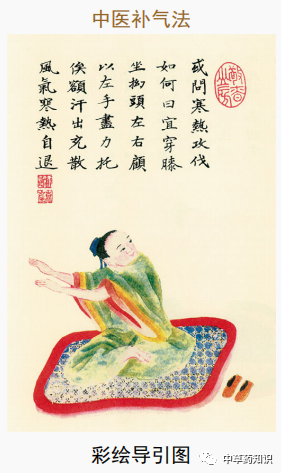 中医补气法
或問寒熱攻伐
如何曰宜穿膝
坐拗頭左右顧
以左手盡力托
俟額汗出充散
風氣寒熱自退
中草药知识
彩绘导引图